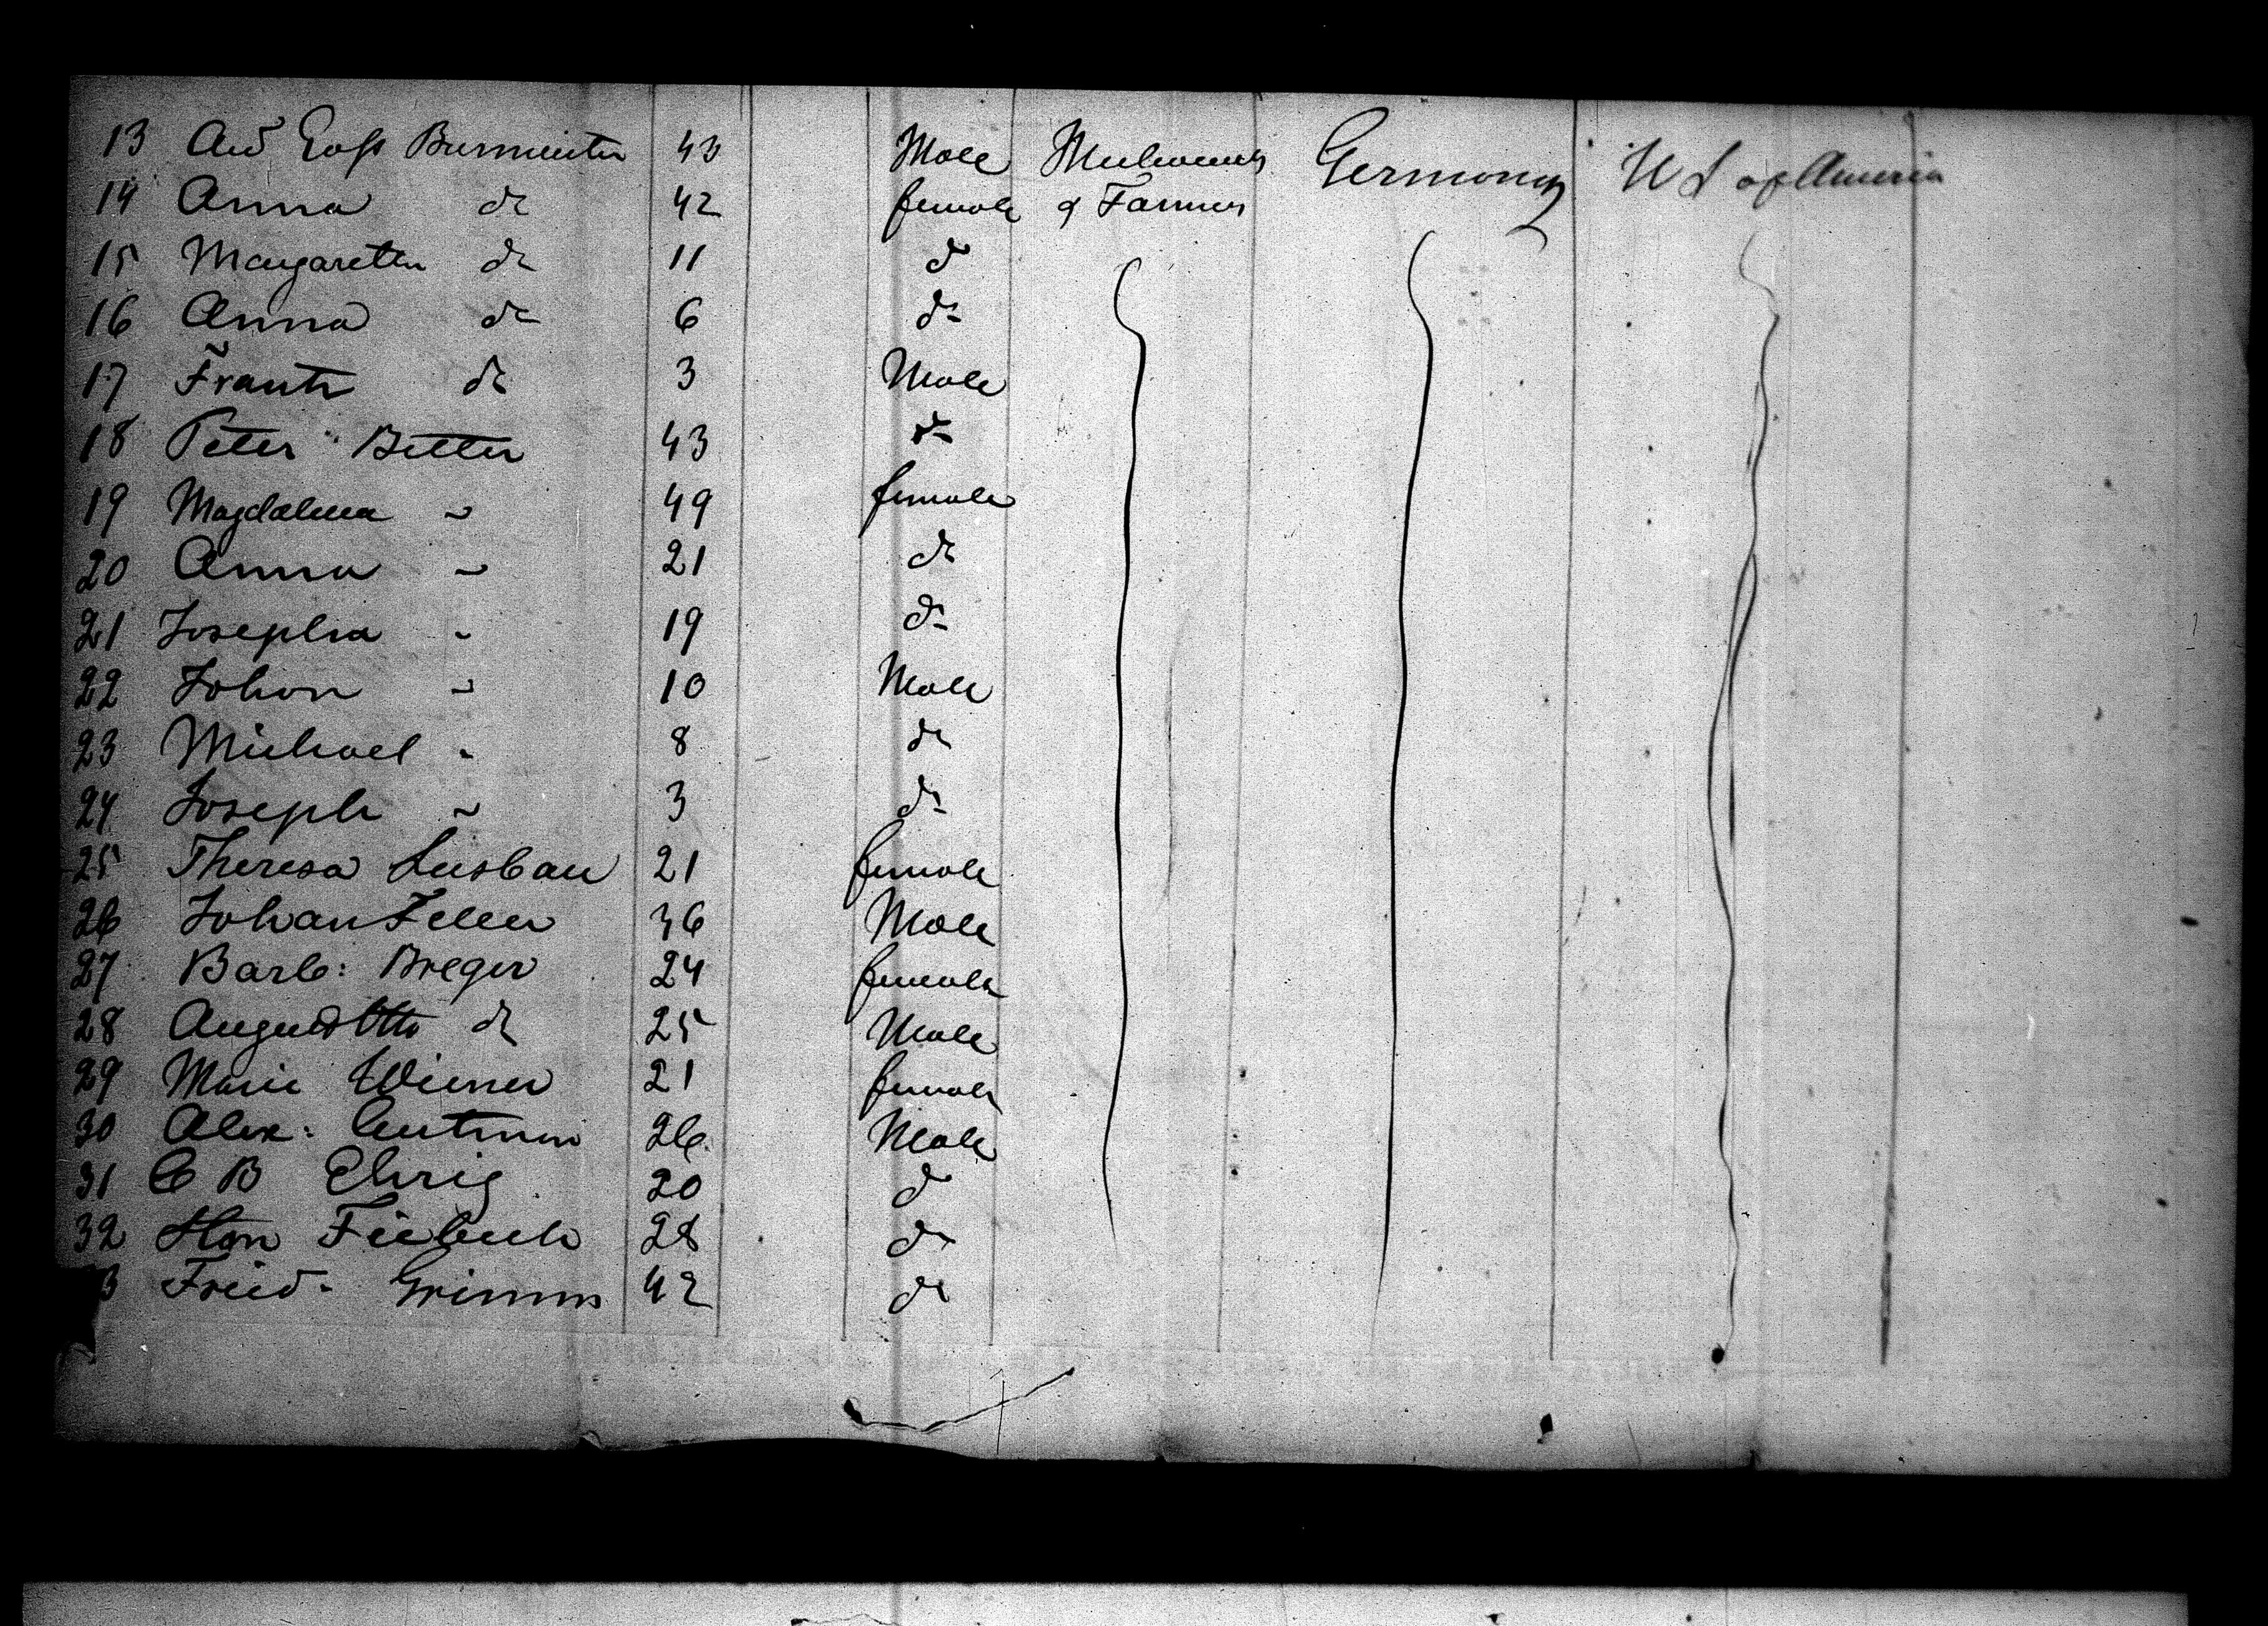 13 And Goss Burmeister 43 Male Mechanics Germany U S of America
14 Anna do 42 female & Farmers
15 Margaretha do 11 do
16 Anna do 6 do
17 Frantz do 3 Male
18 Peter Better 43 do
19 Magdalena " 49 female
20 Anna " 21 do
21 Josepha " 19 do
22 Johan " 10 Male
23 Michael " 8 do
24 Joseph " 3 do
25 Theresa 21 female
26 Johan Feller 36 Male
27 Barb: Breger 24 female
28 August Otto do 25 Male
29 Marie Wiener 21 female
30 Alex: Gutman 26 Male
31 C B Ehrig 20 do
32 Fiebich 28 do
3 Fried. Grimm 42 do